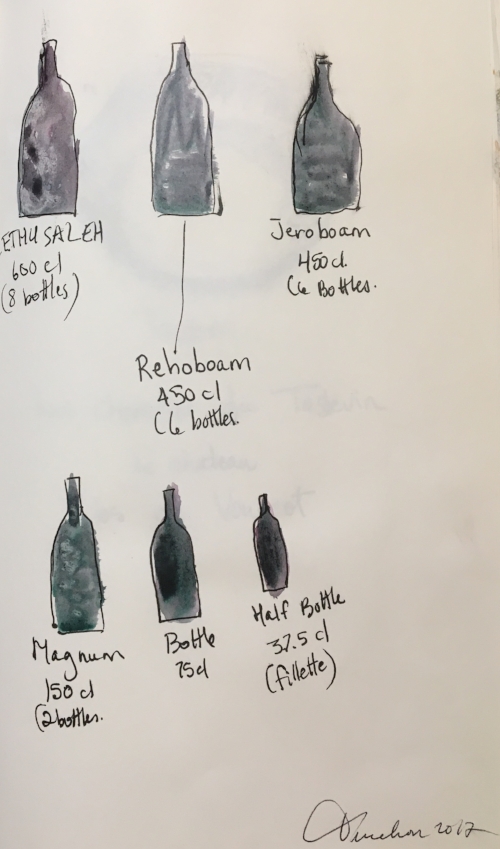 ETHUSALEH
600 cl
(8 bottles)
Rehoboam
450 cl
(6 bottles.
Jeroboam
450 cl.
(6 Bottles.
Magnum
150 cl
(2 bottles.
Bottle
75 cl
Half Bottle
37.5 cl
(fillette)
2017